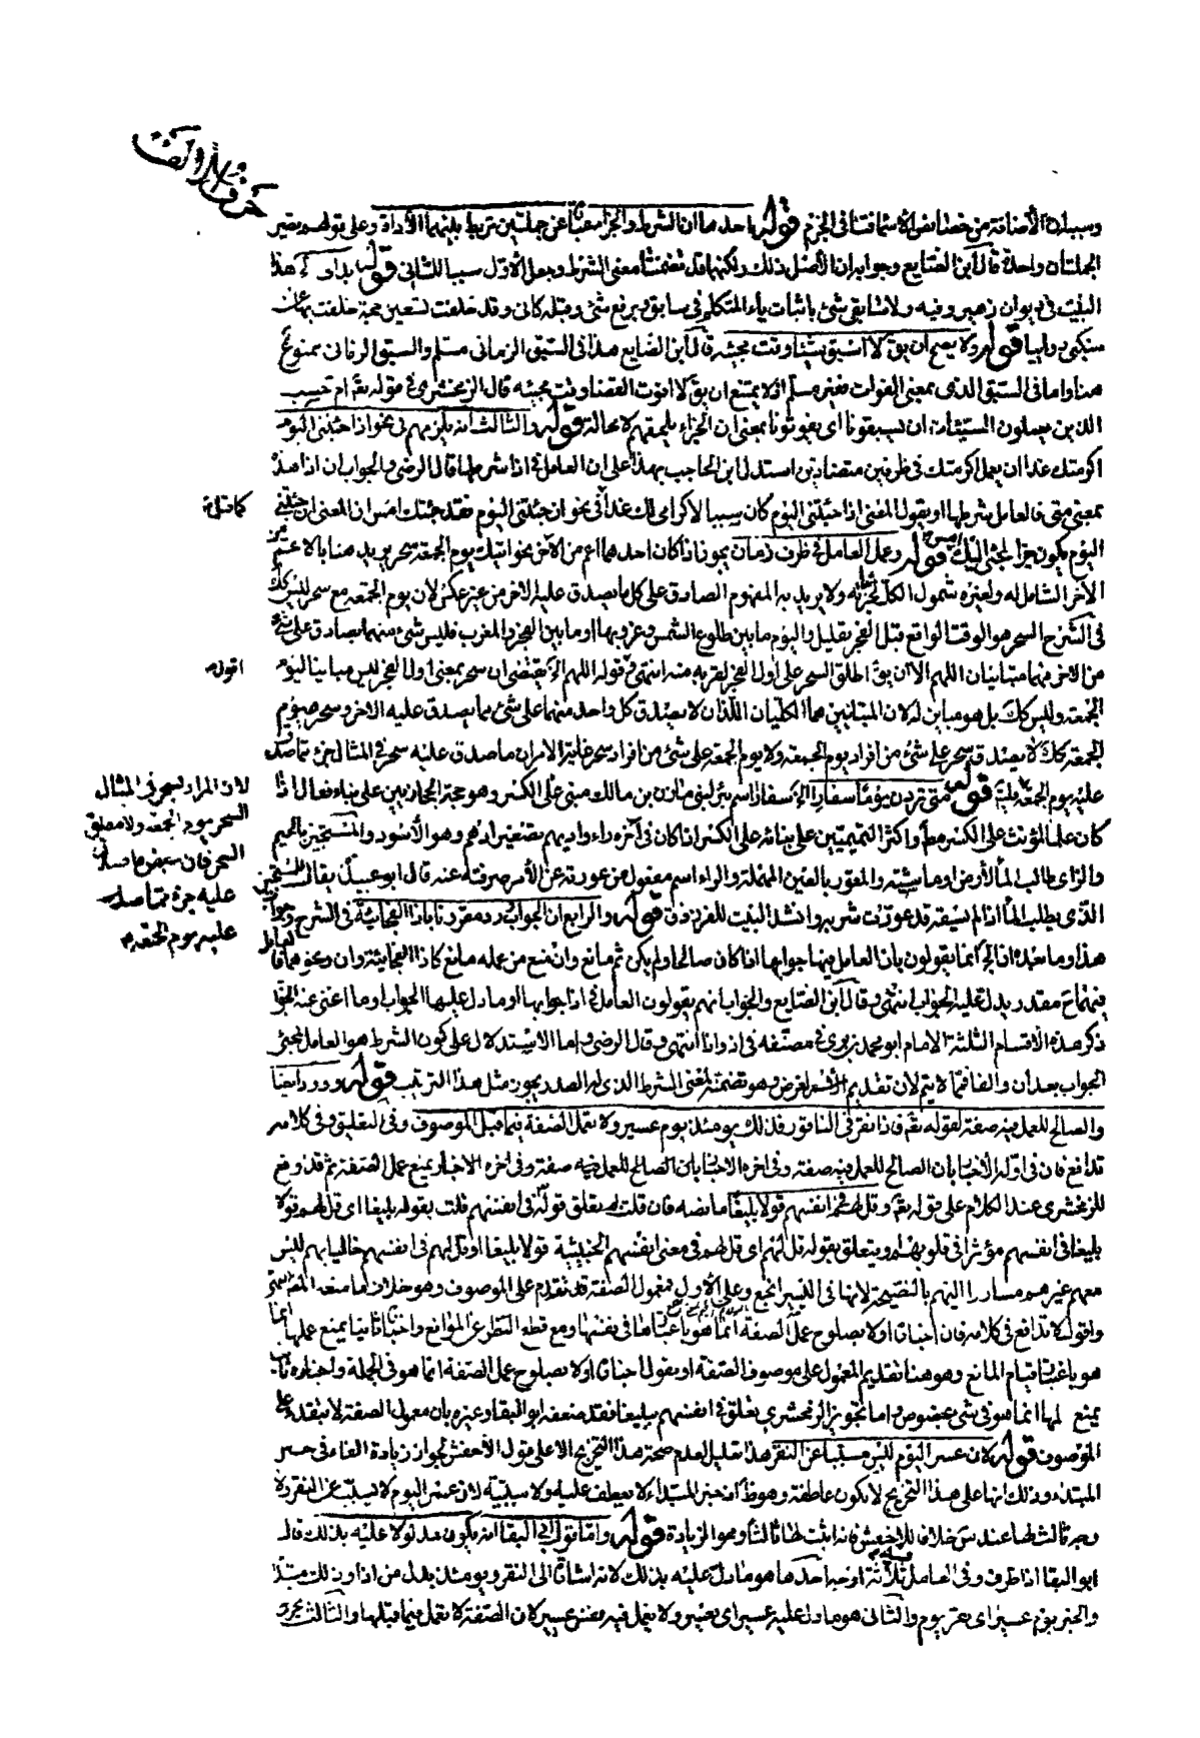 حرف الالف
وسببان الاضافة من خصائص الاسماء فتنافى الجزم قوله احدهما ان الشرط والجزاء عبارة عن جملتين تربط بينهما الاداة وعلى قولهم تصير
الجملتان واحدة قال ابن الصايع وجوابه ان الاصل ذلك ولكنها قد تضمنت معنى الشرط وجعل الاول سببا للثانى قوله بدا لى هذا
البيت فى ديوان زهير وفيه ولا سابقى شئ باثبات ياء المتكلم فى سابق ورفع شئ وقبله كانى وقد خلفت تسعين حجة خلعت بها عن
منكبى ردائيا قوله ولا يصح ان يق لا اسبق شيئا وقت مجيئه قال ابن الضايع هذا فى السبق الزمانى مسلم والسبق الزمانى ممنوع
هنا واما فى السبق الذى بمعنى الفوات فغير مسلم اذ لا يمتنع ان يق لا افوت القضا وقت مجيئه قال الزمخشرى فى قوله تع ام حسب
الذين يعملون السيئات ان يسبقونا اى يفوتونا بمعنى ان الجزاء يلحقهم لا محالة قوله والثالث انه يلزمهم فى نحو اذا جئتنى اليوم
اكرمتك غدا ان يعمل اكرمتك فى ظرفين متضادين استدل ابن الحاجب بهذا على ان العامل فى اذا شرطها قال الرضى والجواب ان اذا هذه
بمعنى متى فالعامل شرطها او يقول المعنى اذا جئتنى اليوم كان سببا لاكرامى لك غدا فى نحو ان جئتنى اليوم فقد جئتك امس ان المعنى ان جئتنى
كما قيل
اليوم يكون جزاء لمجئ اليك امس قوله وعمل العامل فى ظرف زمان يجوز اذا كان احدهما اعم من الآخر نحو اتيك يوم الجمعة سحر يريد هنا بالاعم من
الآخر الشامل له ولغيره شمول الكل لجزئه ولا يريد به المفهوم الصادق على كل ما يصدق عليه الاخر من غير عكس لان يوم الجمعة مع سحر ليس كك
فى الشرح السحر هو الوقت الواقع قبل الفجر بقليل واليوم ما بين طلوع الشمس وغروبها او ما بين الفجر والمغرب فليس شئ منهما يصادق على شئ
من الاخر فهما متباينان اللهم الا ان يق اطلق السحر على اول الفجر لقربه منه انتهى وقوله اللهم الخ يقتضى ان سحر بمعنى اول الفجر ليس مباينا ليوم
اقول
الجمعة وليس كك بل هو مباين له لان المتباينين هما الكليان اللذان لا يصدق كل واحد منهما على شئ مما يصدق عليه الاخر وسحر ويوم
الجمعة كك لا يصدق سحر على شئ من افراد يوم الجمعة ولا يوم الجمعة على شئ من افراد سحر غاية الامر ان ما صدق عليه سحر فى المثال جزء مما صدق
عليه يوم الجمعة فيه قوله متى تردن يوما سفار الخ سفار اسم بئر لبنى مازن بن مالك مبنى على الكسر وهو حجة الحجازيين على بناء فعال اذا
لان المراد بسحر فى المثال
السحر يوم الجمعة ولا مطلق
السحر فان بعض ما صدق
عليه جزء مما صدق
عليه يوم الجمعة
كان علما لمؤنث على الكسر مط واكثر التميميين على بنائه على الكسر اذا كان فى آخره راء واديهم تصغير ادهم وهو الاسود والمستجيز بالجيم
والزاى طالب الماء لارض او ماشية والمعور بالعين المهملة والراء اسم مفعول من عورته عن الامر صرفته عنه قال ابو عبيد يقال للمستجيز
الذى يطلب الماء اذا لم تسقه قد عورت شربه وانشد البيت للفرزدق قوله والرابع ان الجواب ورد مقرونا باذا الفجائية فى الشرح وجواب
هذا وما بعده اذا الخ انما يقولون بان العامل فيها جوابها اذا كان صالحا ولم يكن ثم مانع وان منع من عمله مانع كاذا الفجائية وان ونحوهما فالعامل
فيها ح مقدر يدل عليه الجواب انتهى وقال ابن الضايع والجواب انهم يقولون العامل فى اذا جوابها او ما دل عليها الجواب او ما اغنى عنه الجواب
ذكر هذه الاقسام الثلثة الامام ابو محمد بن برى فى مصنفه فى اذ واذا انتهى وقال الرضى واما الاستدلال على كون الشرط هو العامل بمجئ
الجواب بعد ان والفا فمما لا يتم لان تقديم الاسم لغرض وهو تضمنه لمعنى الشرط الذى له الصدر يجوز مثل هذا الترتيب قوله وورد ايضا
والصالح للعمل فيه صفة لقوله تع فاذا نقر فى الناقور فذلك يومئذ يوم عسير ولا تعمل الصفة فيما قبل الموصوف وفى التعليق وفى كلامه
تدافع فان فى اوله الاخبار بان الصالح للعمل فيه صفة وفى اخره الاخبار بان الصالح للعمل فيه صفة وفى اخره الاخبار بمنع عمل الصفة ثم قد وقع
للزمخشرى عند الكلام على قوله تع وقل لهم فى انفسهم قولا بليغا ما نصه فان قلت بم تعلق قوله فى انفسهم قلت بقوله بليغا اى قل لهم قولا
بليغا فى انفسهم مؤثرا فى قلوبهم او يتعلق بقوله قل لهم اى قل لهم فى معنى انفسهم الخبيثة قولا بليغا او قل لهم فى انفسهم خاليا بهم ليس
معهم غيرهم مسارا اليهم بالنصيحة لانها فى السر انجع وعلى الاول فمعمول الصفة قد تقدم على الموصوف وهو خلاف ما منعه المصـ انتهى
واقول لا تدافع فى كلامه فان اخباره اولا بصلوح عمل الصفة انما هو باعتبارها فى نفسها ومع قطع النظر عن الموانع واخباره ثانيا بمنع عملها انما
هو باعتبار قيام المانع وهو هنا تقديم المعمول على موصوف الصفة او يقول اخباره اولا بصلوح عمل الصفة انما هو فى الجملة واخباره ثانيا
بمنع عملها انما هو فى شئ بخصوصه واما تجويز الزمخشرى تعلق فى انفسهم ببليغا فقد ضعفه ابو البقا وغيره بان معمول الصفة لا يتقدم على
الموصوف قوله ولان عسر اليوم ليس مسببا عن النقر هذا تعليل لعدم صحة هذا التخريج الا على قول الاخفش بجواز زيادة الفاء فى خبر
المبتدا وذلك انها على هذا التخريج لا تكون عاطفة وهو ظ لان خبر المبتداء لا يعطف عليه ولا سببية لان عسر اليوم لا يسبب عن النقر ولا
وجه ثالث لها عند س خلافا للاخفش فانه اثبت لها ثالثا وهو الزيادة قوله واما قول ابى البقا انه يكون مدلولا عليه بذلك قال
ابو البقا اذا ظرف وفى العامل فيه ثلاثة اوجه احدها هو ما دل عليه بذلك لانه اشارة الى النقر ويومئذ بدل من اذا وذلك مبتدا
والخبر يوم عسير اى نقر يوم والثانى هو ما دل عليه عسير اى يعسر ولا يعمل فيه نفس عسير لان الصفة لا تعمل فيما قبلها والثالث يخرج